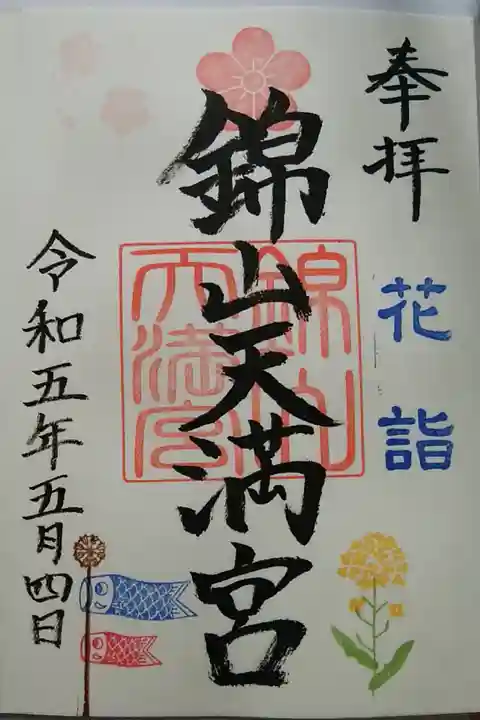 奉拝
花詣
錦山天満宮
錦山天満宮
令和五年五月四日